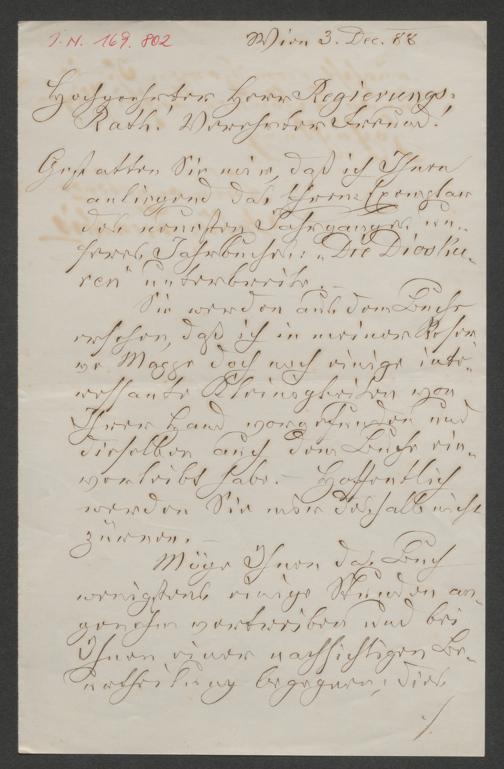 I. N. 169.802
Wien 3. Dec. 88
Hochgeehrter Herr Regierungs-
Rath! Verehrter Freund!
Gestatten Sie mir, daß ich Ihnen
anliegend das Ehren-Exemplar
des neunten Jahrganges un-
seres Jahrbuches: „Die Diosku-
ren" unterbreite. –
Sie werden aus dem Buche
ersehen, daß ich in meiner Reser-
ve Mappe doch noch einige inte-
ressante Kleinigkeiten von
Ihrer Hand vorgefunden und
dieselben auch dem Buche ein-
verleibt habe. – Hoffentlich
werden Sie mir deshalb nicht
zürnen. –
Möge Ihnen das Buch
wenigstens einige Stunden an-
genehm vertreiben und bei
Ihnen einer nachsichtigen Be-
urtheilung begegnen, dies
./.